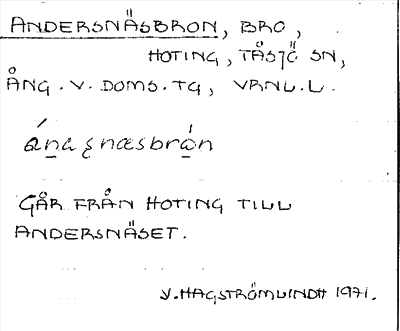 ANDERSNÄSBRON, BRO,
HOTING, TÅSJÖ SN,
ÅNG. V. DOMS. TG, VRNL. L.
GÅR FRÅN HOTING TILL
ANDERSNÄSET.
V. HAGSTRÖMLINDH 1971.